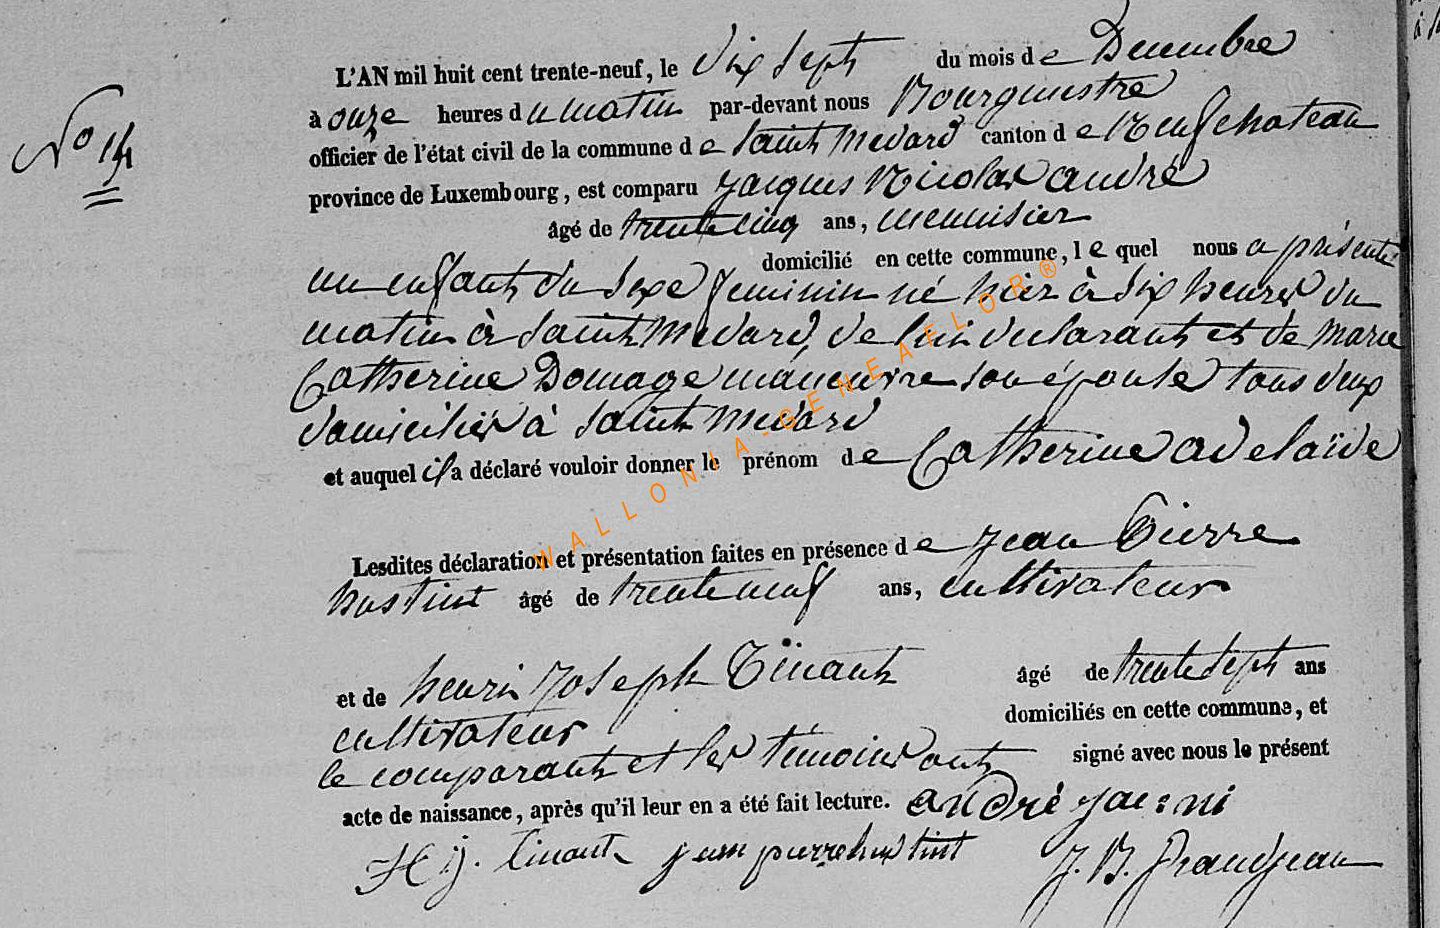 L'AN mil huit cent trente-neuf, le dix sept du mois de Decembre
No 14
à onze heures du matin par-devant nous Bourgmestre
officier de l'état civil de la commune de Saint Medard canton de Neufchateau
province de Luxembourg, est comparu Jacques Nicolas andré
âgé de trente cinq ans, menuisier
domicilié en cette commune, lequel nous a présenté
un enfant du sexe feminin né hier à six heures du
matin à Saint Medard, de lui declarant et de marie
Catherine Domage maneuvre son épouse tous deux
domiciliés à Saint Medard
et auquel il a déclaré vouloir donner le prénom de Catherine adelaïde
Lesdites déclaration et présentation faites en présence de Jean Pierre
hustint âgé de trente neuf ans, cultivateur
et de henri Joseph Tinant âgé de trente sept ans
cultivateur domiciliés en cette commune, et
le comparant et les témoins ont signé avec nous le présent
acte de naissance, après qu'il leur en a été fait lecture. andré
H j. Tinant jean pierre hustint J. B. Grandjean
WALLONIA-GENEAFLOR®